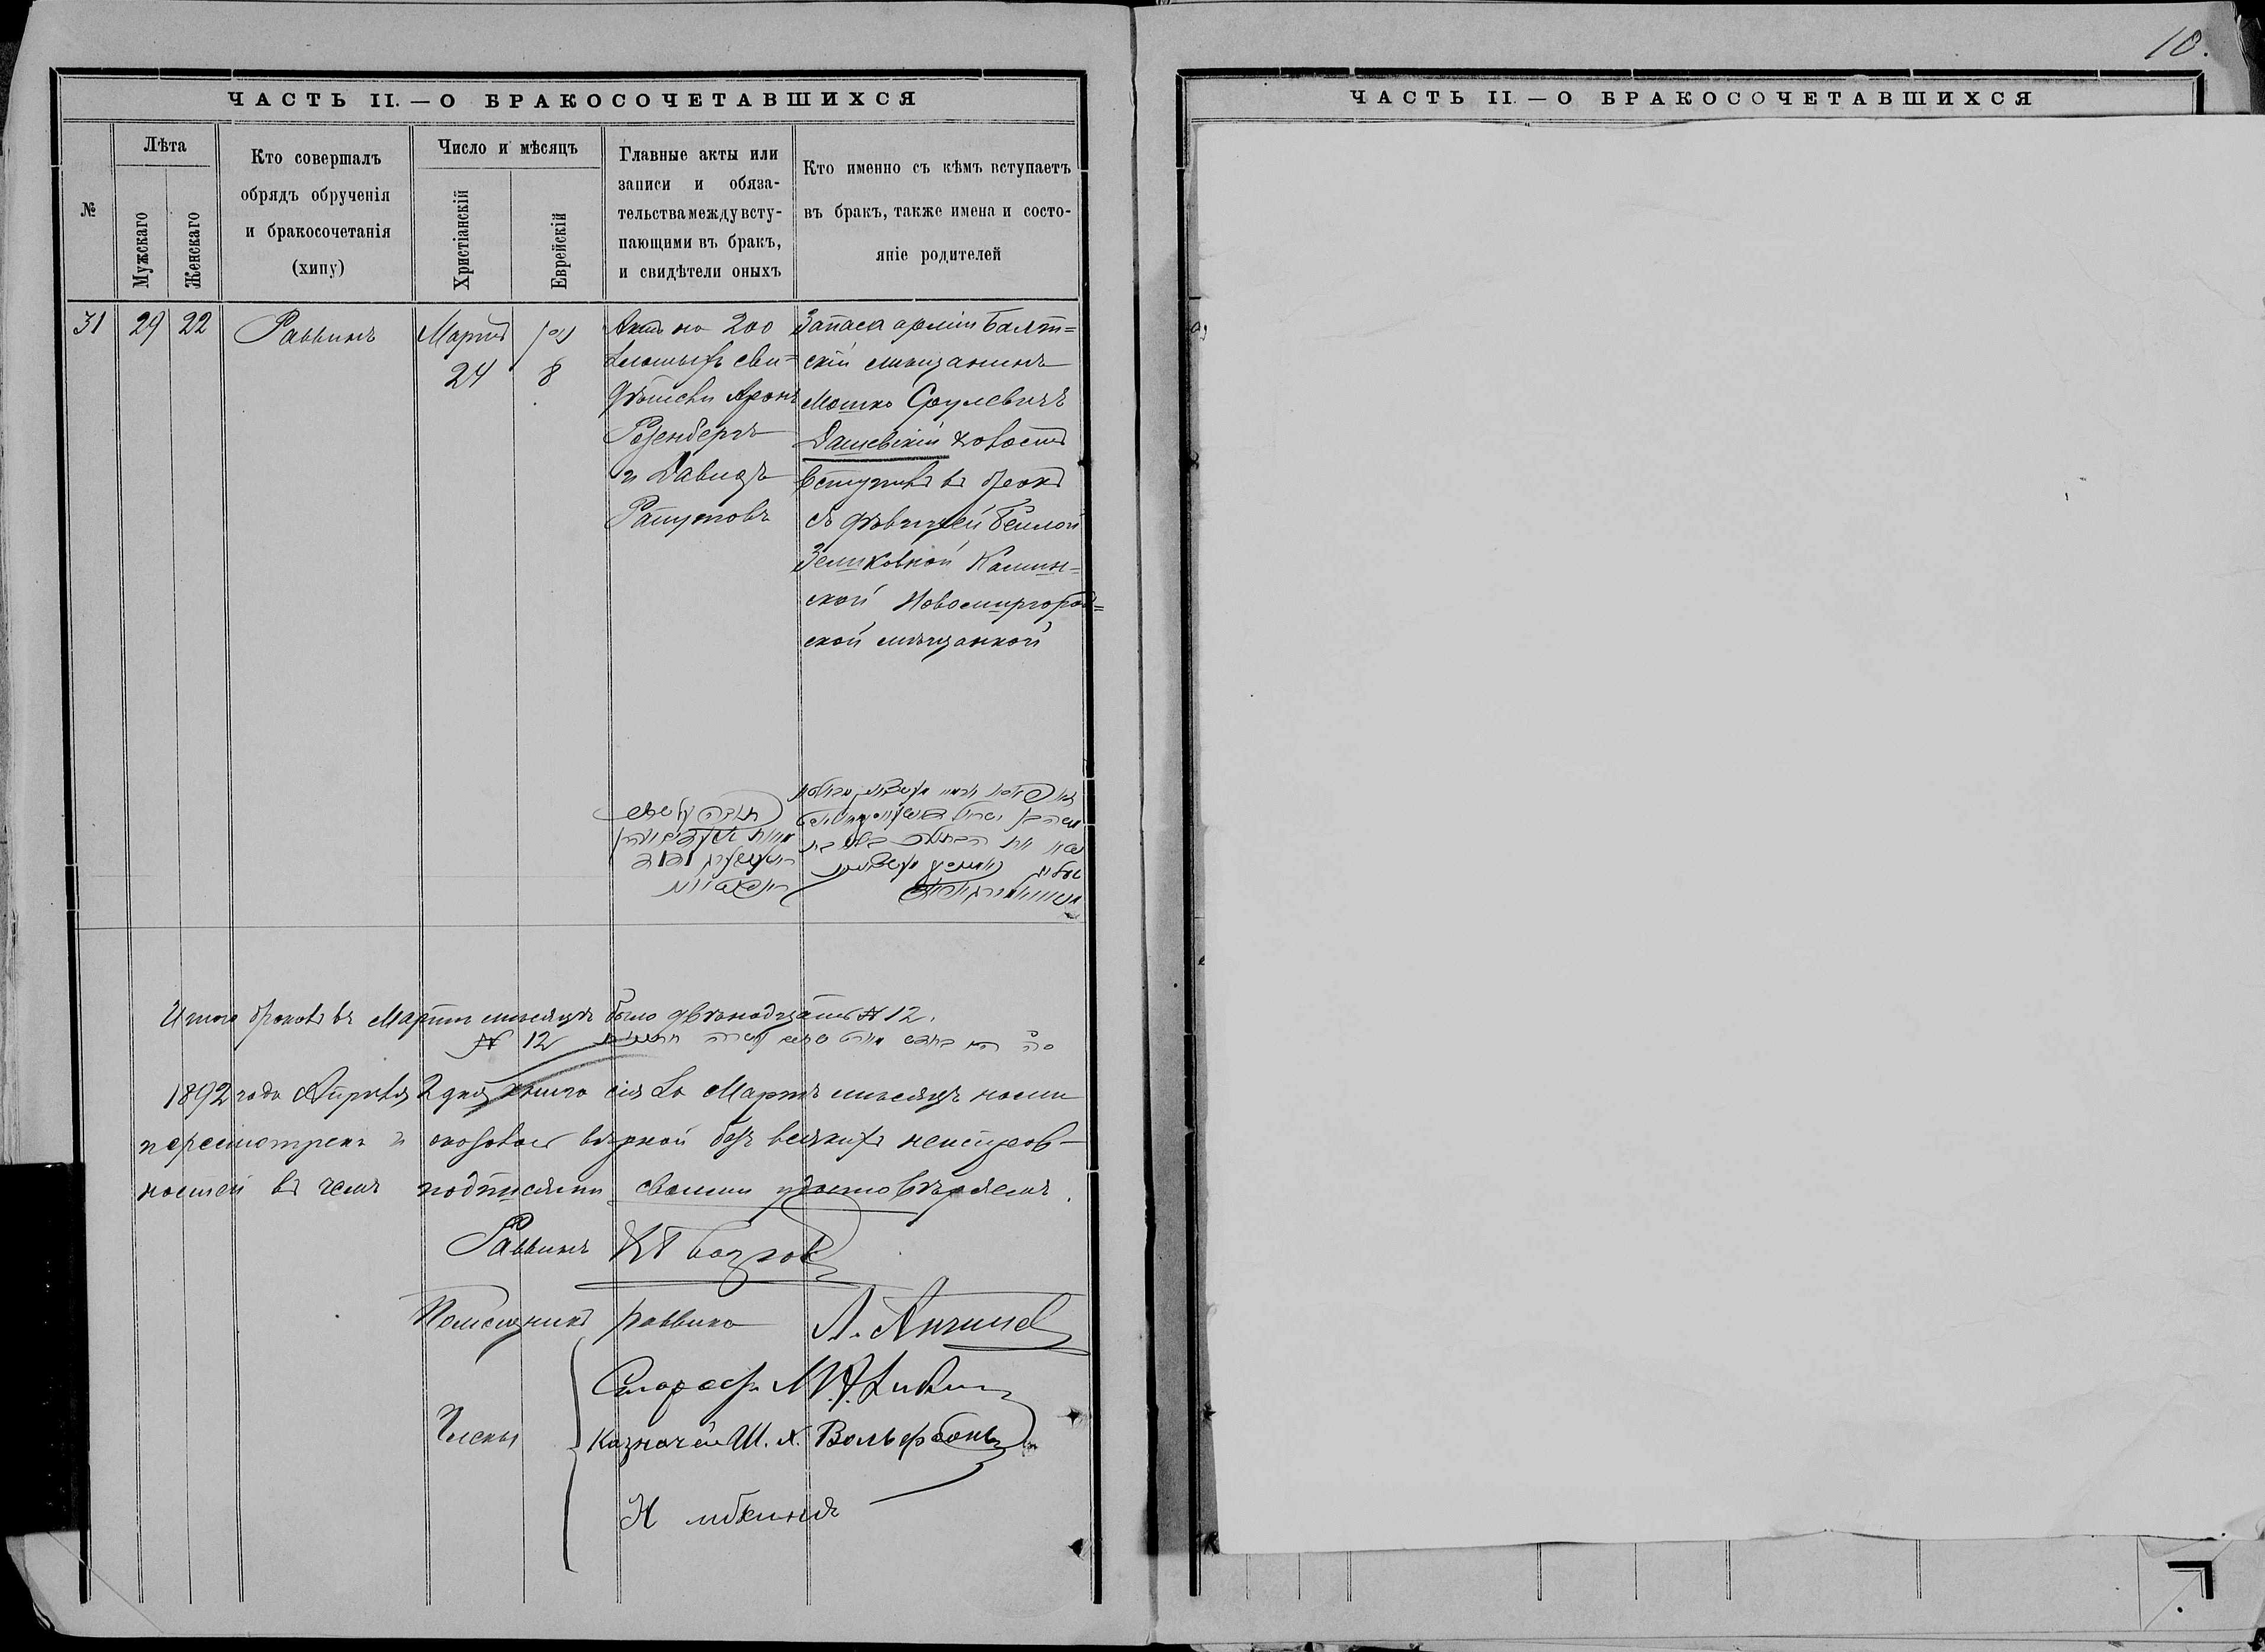 10.
ЧАСТЬ II. — О БРАКОСОЧЕТАВШИХСЯ
№
Лѣта
Мужскаго
Женскаго
Кто совершалъ
обрядъ обрученія
и бракосочетанія
(хипу)
Число и мѣсяцъ
Христіанскій
Еврейскій
Главные акты или
записи и обяза-
тельства между всту-
пающими въ бракъ,
и свидѣтели оныхъ
Кто именно съ кѣмъ вступаетъ
въ бракъ, также имена и состо-
яніе родителей
31
29
22
Раввинъ
Марта
24
ניסן
8
Актъ на 200
злотыхъ сви-
дѣтели Аронъ
Розенбергъ
и Давидъ
Запаса арміи Балт=
скій мѣщанинъ
Мошко Сруlевичъ
Дашевскій холостъ
вступилъ въ бракъ
съ дѣвицей Бейлой
Зелиkовной Камин=
ской Новомиргород=
ской мѣщанкой
Итого браковъ въ Мартѣ мѣсяцѣ было двѣнадцать № 12.
№ 12
1892 года Апрѣля 2 дня книга сія за Мартъ мѣсяцъ нами
пересмотрена и оказалась вѣрной безъ всякихъ неисправ-
ностей въ чемъ подписями своими удостовѣряемъ.
Раввинъ
Помощникъ раввина
Члены
Староста
Казначей Ш. Х. Вольфсонъ
ЧАСТЬ II. — О БРАКОСОЧЕТАВШИХСЯ